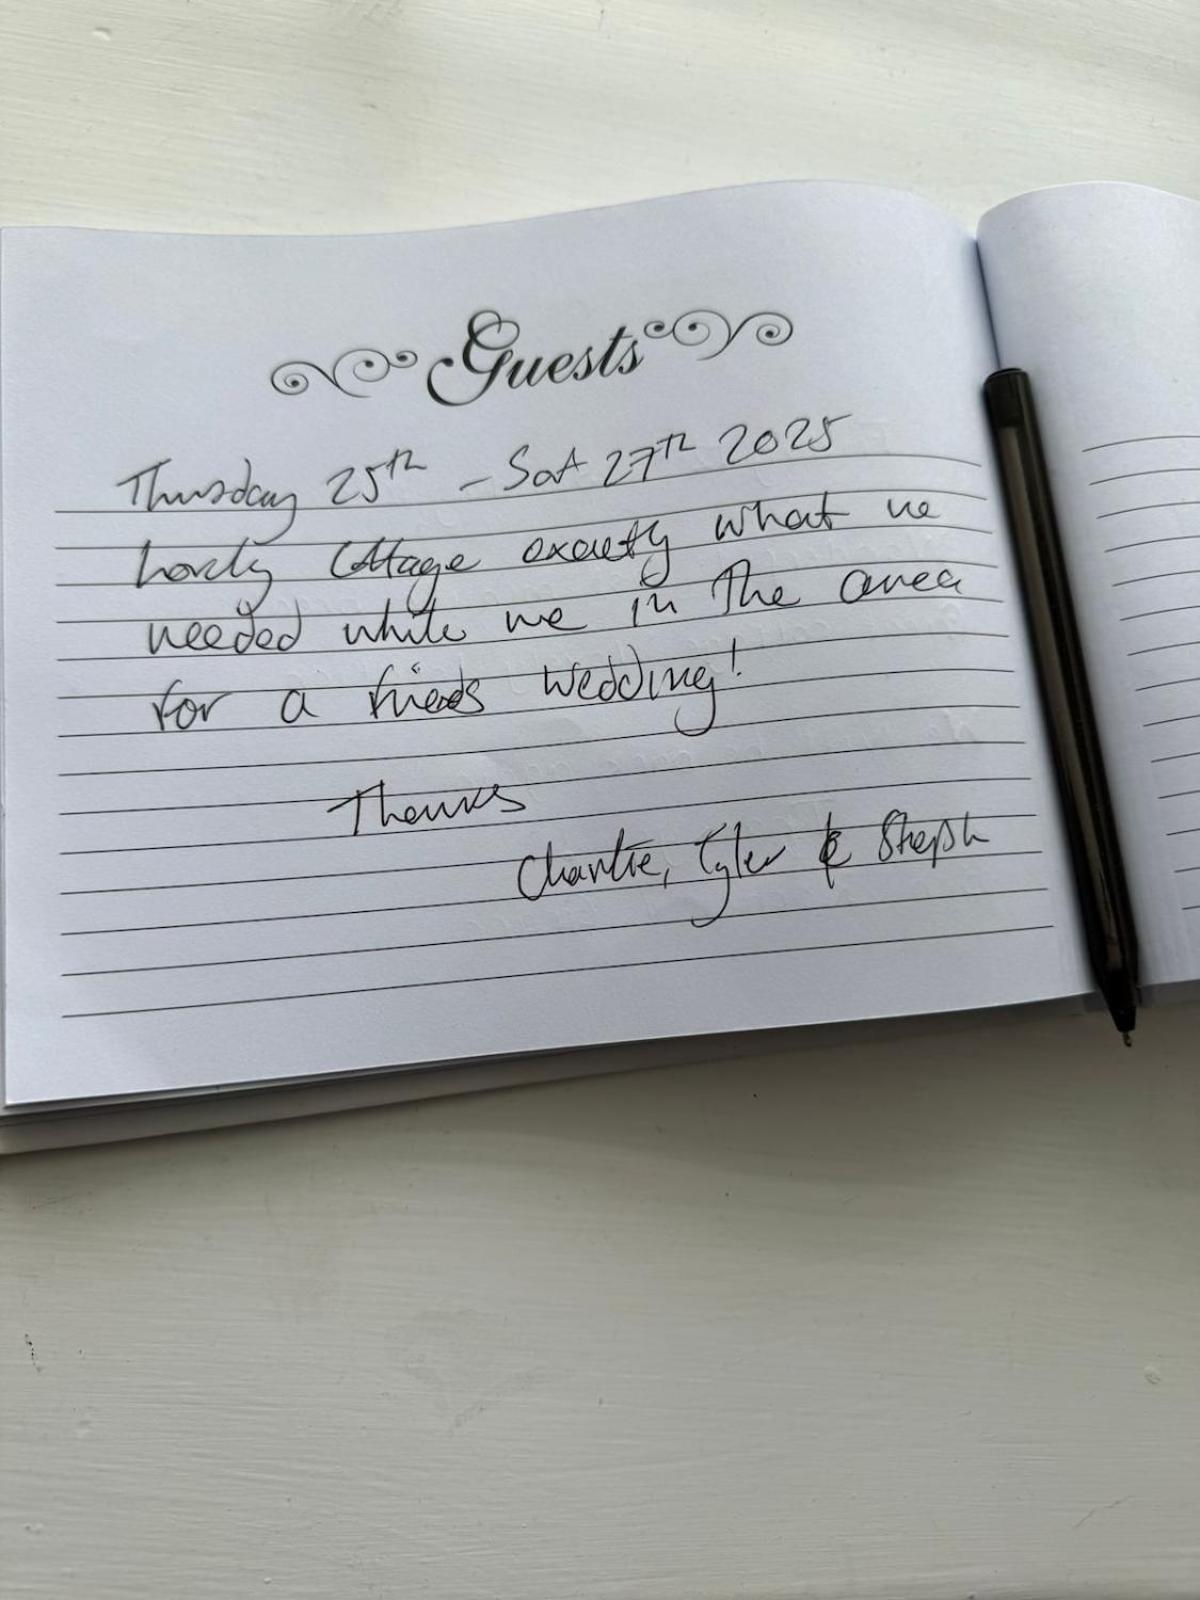 Guests
Thursday 25th - Sat 27th 2025
Lovely Cottage exactly what we
needed while we in the area
for a friends wedding!
Thanks
Charlie, Tyler & Steph